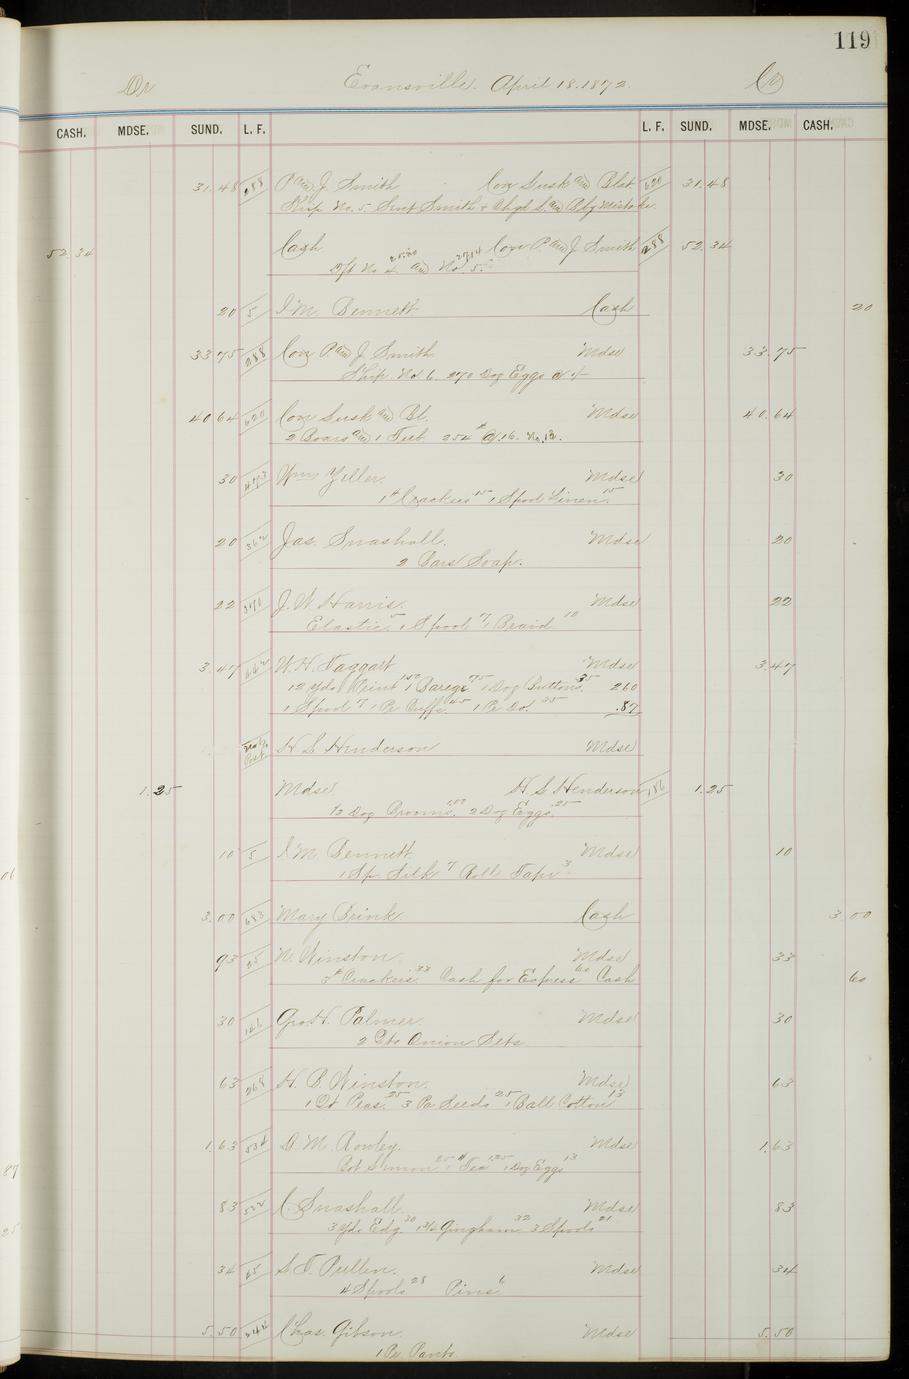 119
Dr Evansville. April 18. 1872. Cr
CASH. MDSE. SUND. L. F. L. F. SUND. MDSE. CASH.
31.48 288 P and J Smith Con Lusk and Blat 620 31.48
Ship No. 5. Sent Smith & Chgd L. and B by Mistake.
52.34 Cash Con P and J Smith 288 52.34
Dft No 4 25.20 and No 5. 27.14
20 5 I M. Bennett Cash 20
33 75 288 Con P and J Smith Mdse 33.75
Ship. No 6. 270 Doz Eggs @
40 64 620 Con Lusk and Bl. Mdse 40.64
2 Boars and 1 Tub. 254 # @ .16. No. 12.
30 473 Wm Yeller. Mdse 30
1 # Crackers 15 1 Spool Linen 15
20 362 Jas. Snashall. Mdse 20
2 Bars Soap.
22 370 J. W. Harris. Mdse 22
Elastic 5 1 Spool 7 1 Braid 10
3.47 642 W. H. Taggart Mdse 3.47
12 yds Print 1.50 1 Barege 75 1 Doz Buttons 35 2 60
1 Spool 7 1 Pr Cuffs 45 1 Pr Do 35 .87
H S Henderson Mdse
1.25 Mdse H S Henderson 186 1.25
1/2 Doz Brooms 1.00 2 Doz Eggs 25
10 5 I M. Bennett Mdse 10
1 Sp. Silk 7 Roll Tape 3
3.00 683 Mary Brink Cash 3 00
93 25 N. Winston Mdse 33
3 # Crackers 33 Cash for Express 60 Cash 60
30 146 Geo. H. Palmer Mdse 30
2 Qts Onion Sets
63 268 H. B. Winston. Mdse 63
1 Qt Peas. 25 3 Pa Seeds 25 1 Ball Cotton 13
1.63 534 D. M. Rowley. Mdse 1.63
Bot 25 1 # Tea 1.25 1 Doz Eggs 13
83 522 C. Snashall. Mdse 83
3 yds Edg. 30 Gingham 32 3 Spools 21
34 65 S. T. Pullen. Mdse 34
4 Spools 28 Pins 6
5.50 244 Chas. Gibson. Mdse 5.50
1 Pr Pants